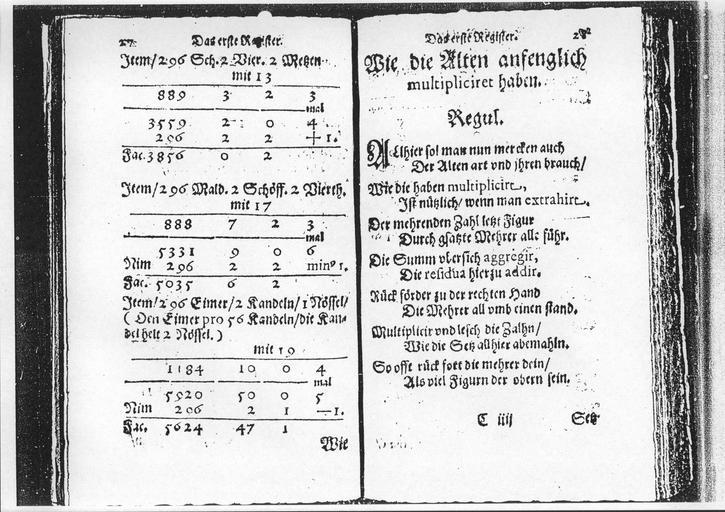 27 Das erste Register.
Item/296 Sch. 2 Vier. 2 Metzen
mit 13
889 3 2 3
mal
3559 2 0 4
296 2 2 + 1.
Fac. 3856 0 2
Item/296 Mald. 2 Schöff. 2 Vierth.
mit 17
888 7 2 3
mal
5331 9 0 6
Nim 296 2 2 min⁹ 1.
Fac. 5035 6 2
Item/296 Eimer/2 Kandeln/1 Nössel/
(Den Eimer pro 56 Kandeln/die Kan-
del helt 2 Nössel.)
mit 19
1184 10 0 4
mal
5920 50 0 5
Nim 296 2 1 — 1.
Fac. 5624 47 1
Wie
Das erste Register.
Wie die Alten anfenglich
multipliciret haben.
Regul.
Allhier sol man nun mercken auch
Der Alten art vnd jhren brauch/
Wie die haben multiplicirt,
Ist nützlich/ wenn man extrahirt.
Der mehrenden Zahl letzt Figur
Durch gsatzte Mehrer alle führ.
Die Summ vbersich aggregir,
Die residua hierzu addir.
Rück förder zu der rechten Hand
Die Mehrer all vmb einen stand.
Multiplicir vnd lesch die Zalhn/
Wie die Setz allhier abemahln.
So offt rück fort die mehrer dein/
Als viel Figurn der obern sein.
C iiij Setz